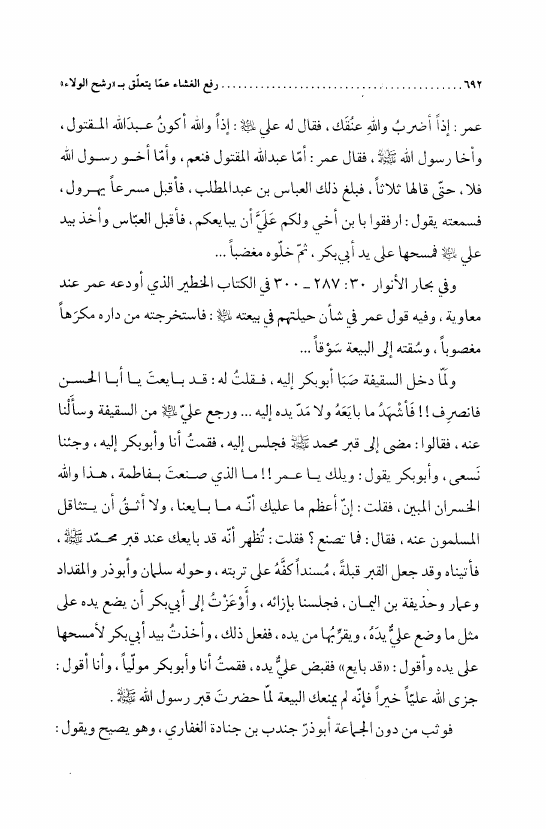 ٦٩٢ ........................................... رفع الغشاء عمّا يتعلّق بـ «رشح الولاء»
عمر : إذاً أضربُ واللهِ عنُقَك ، فقال له علي ﷷ : إذاً والله أكونُ عبدَالله المقتول ،
وأخا رسول الله ﷺ ، فقال عمر : أمّا عبدالله المقتول فنعم ، وأمّا أخو رسول الله
فلا ، حتّى قالها ثلاثاً ، فبلغ ذلك العباس بن عبدالمطلب ، فأقبل مسرعاً يهرول ،
فسمعته يقول : ارفقوا با بن أخي ولكم عَلَيَّ أن يبايعكم ، فأقبل العبّاس وأخذ بيد
علي ﷷ فمسحها على يد أبي‌بكر ، ثمّ خلّوه مغضباً ...
وفي بحار الأنوار ٣٠ : ٢٨٧ ـ ٣٠٠ في الكتاب الخطير الذي أودعه عمر عند
معاوية ، وفيه قول عمر في شأن حيلتهم في بيعته ﷷ : فاستخرجته من داره مكرَهاً
مغصوباً ، وسُقته إلى البيعة سَوْقاً ...
ولمّا دخل السقيفة صَبَا أبوبكر إليه ، فقلتُ له : قد بايعتَ يا أبا الحسن
فانصرِف !! فَأشْهَدُ ما بايَعَهُ ولا مَدّ يده إليه ... ورجع عليّ ﷷ من السقيفة وسألْنا
عنه ، فقالوا : مضى إلى قبر محمد ﷺ فجلس إليه ، فقمتُ أنا وأبوبكر إليه ، وجئنا
نَسعى ، وأبوبكر يقول : ويلك يا عمر !! ما الذي صنعتَ بفاطمة ، هذا والله
الخسران المبين ، فقلت : إنّ أعظم ما عليك أنّه ما بايعنا ، ولا أثقُ أن يتثاقل
المسلمون عنه ، فقال : فما تصنع ؟ فقلت : تُظهر أنّه قد بايعك عند قبر محمّد ﷺ ،
فأتيناه وقد جعل القبر قبلةً ، مُسنداً كفَّهُ على تربته ، وحوله سلمان وأبوذر والمقداد
وعمار وحذيفة بن اليمان ، فجلسنا بإزائه ، وأوْعَزْتُ إلى أبي‌بكر أن يضع يده على
مثل ما وضع عليٌّ يَدَهُ ، ويقرّبُها من يده ، ففعل ذلك ، وأخذتُ بيد أبي‌بكر لأمسحها
على يده وأقول : «قد بايع» فقبض عليٌّ يده ، فقمتُ أنا وأبوبكر مولّياً ، وأنا أقول :
جزى الله عليّاً خيراً فإنّه لم يمنعك البيعة لمّا حضرتَ قبر رسول الله ﷺ .
فوثب من دون الجماعة أبوذرّ جندب بن جنادة الغفاري ، وهو يصيح ويقول :